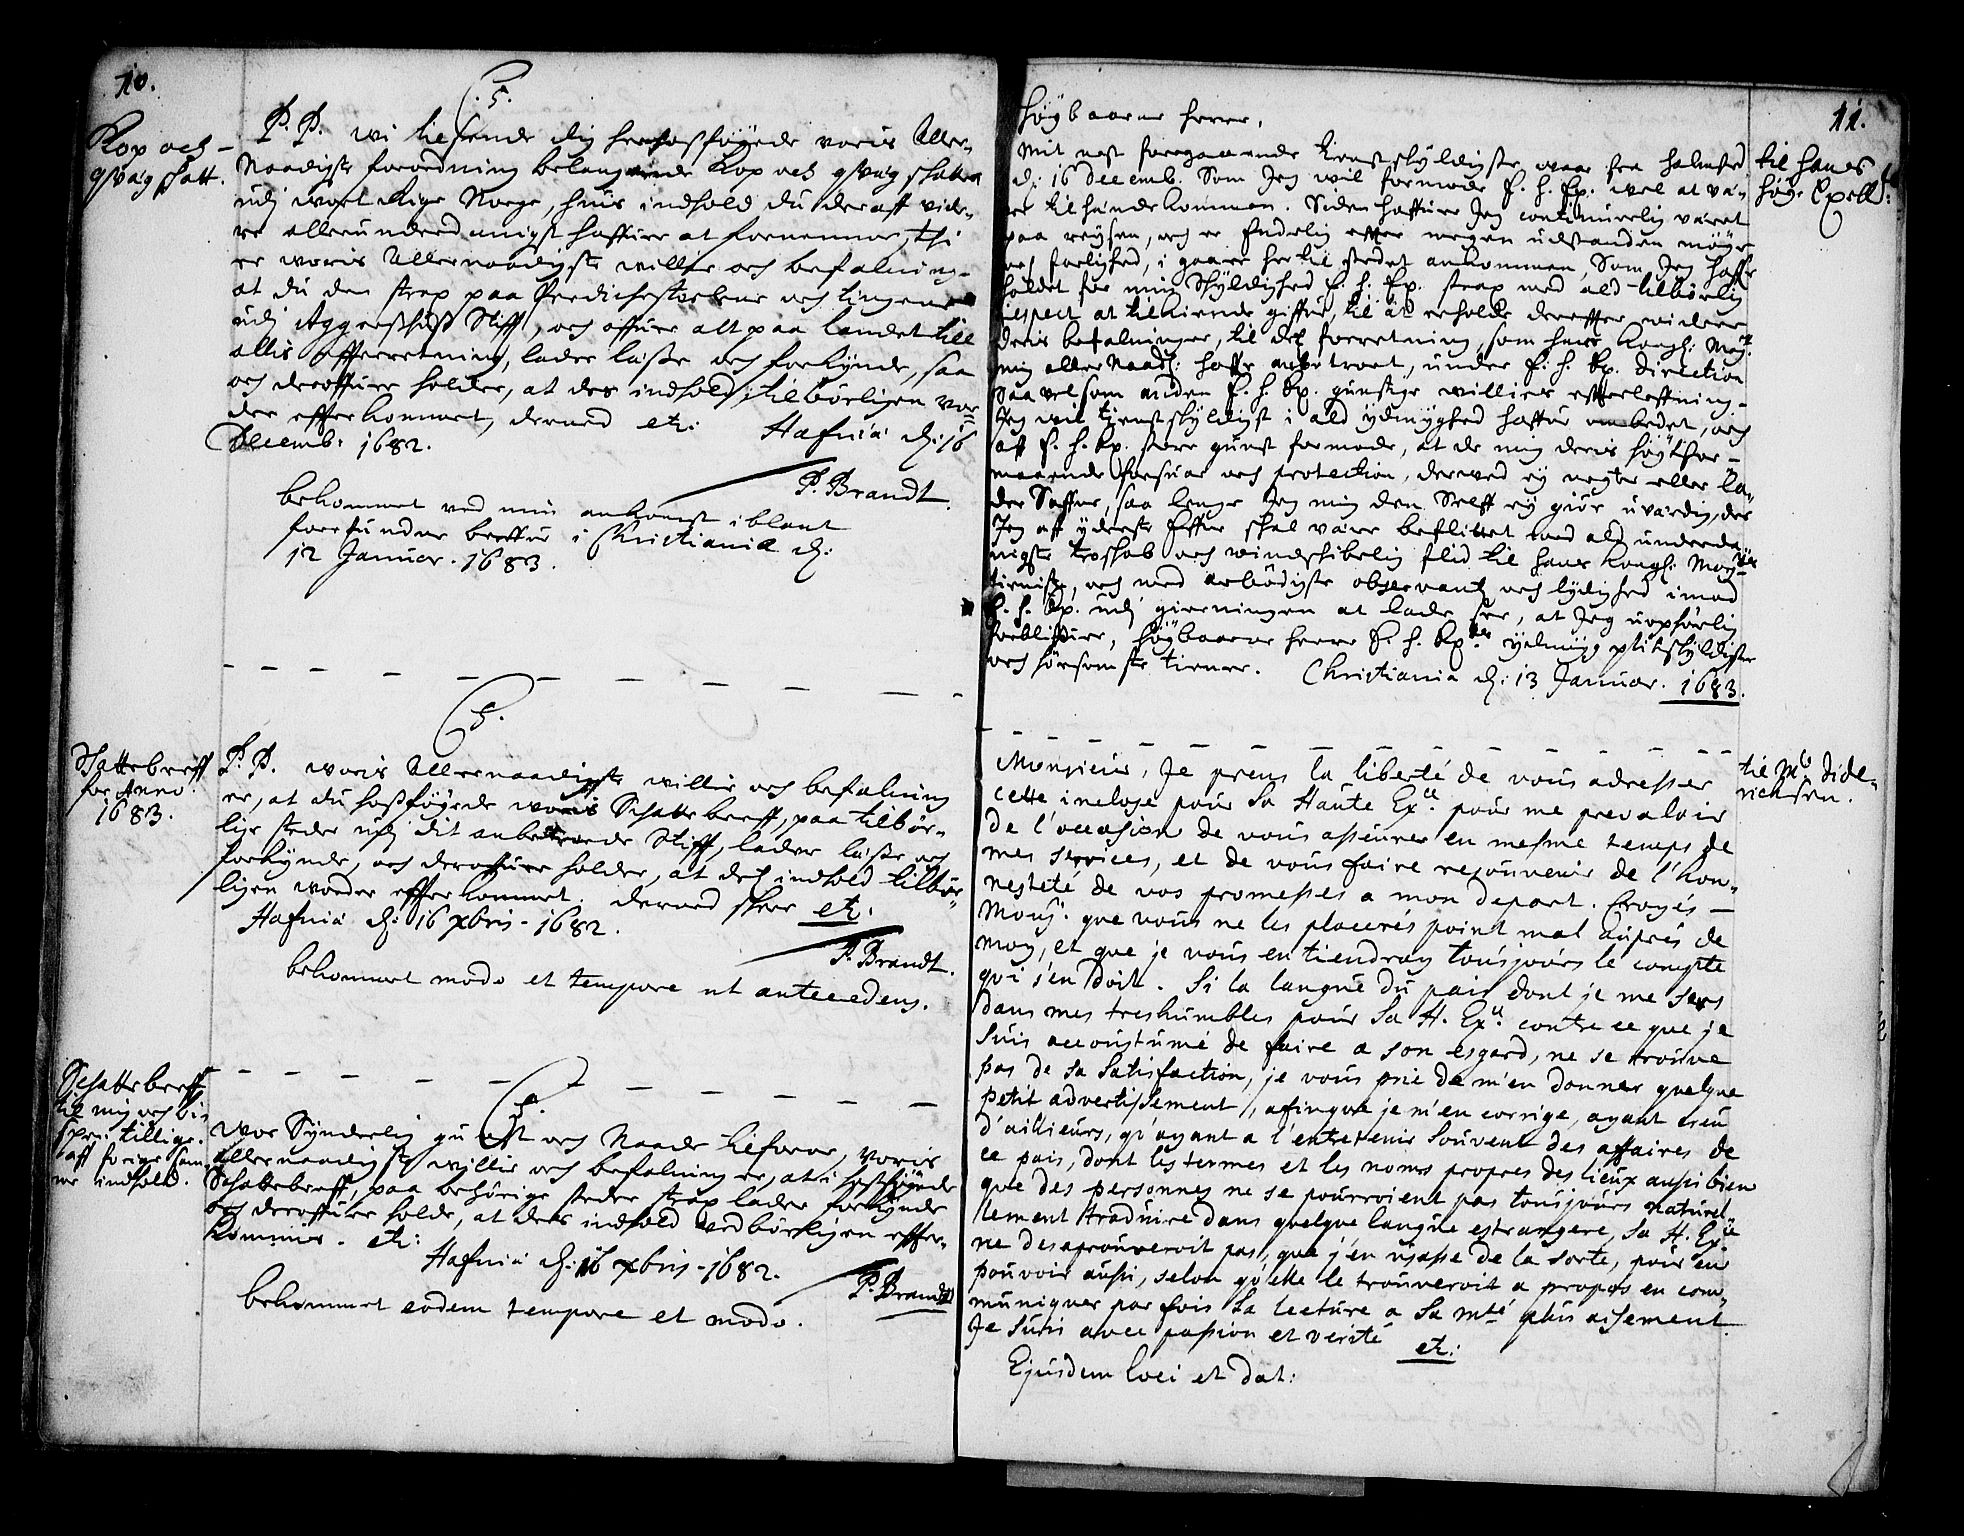 10.
Kop och
qvæg skatt.
C. 5.
P. P. Wi tilsende dig herhosføyede voris Aller-
Naadigste forordning belangende Kop och qvæg skatten
udj wort Rige Norge, huis indhold du deraff vide-
re allerunderdanigst haffuer at fornemme, thi
er woris Allernaadigste willie och befalning
at du den strax paa Predichestoelene och tingene
udj Aggershuus Stifft, och offuer alt paa landet till
allis efferretning, lader læsse och forkynde, saa
och deroffuer holder, at des indhold tilbørligen vor-
der efferkommet, dermed etc: Hafniæ d: 16
Decemb: 1682.
P. Brandt.
bekommet ved min ankomst iblant
forefundne breffue i Christiania d:
12 Januar. 1683.
C. 5.
Skattebreff
for Anno
1683.
P. P. Woris Allernaadigste willie och befalning
er, at du hosføyede woris Schattebreff, paa tilbør-
lige steder udj dit anbetroede Stifft, lader læsse och
forkynde, och deroffuer holder, at des indhold tilbør-
ligen worder efferkommet. dermed skeer etc.
Hafniæ d: 16 Xbris - 1682.
P. Brandt.
bekommet modo et tempore ut antecedens.
C. 5.
Schattebreff
til mig och bi-
spen tillige.
aff forige sam-
me indhold.
Wor Synderlig gunst och Naade tilforne, voris
allernaadigste willie och befalning er, at i hosføyede
Schattebreff, paa behörige steder strax lader forkynde
och deroffuer holde, at dets indhold vedbørligen effter-
kommis. etc:
Hafniæ d: 16 Xbris - 1682.
P. Brandt
bekommet eodem tempore et modo.
11.
til hans
høye Excell:
Høybaarne Herre,
Mit nest foregaaende tienstskyldigste, waar fra Halmsted
d: 16 Decemb. Som Jeg wil formode E. H. Ex. wel at væ-
re tilhændekommen. Siden haffuer Jeg continuerlig været
paa reysen, och er Endelig effter megen udstanden møye
och farlighed, i gaar her til stedet ankommen, Som Jeg haffr
holdet for min Skyldighed E. H. Ex. strax med ald tilbørlig
respect at tilkiende giffue, til at erholde dereffter widere
deris befalninger, til des forretning, som hans Kongl: Mayt.
mig aller Naadst: haffr anbetroet, under E. H. Ex. direction
Saa vel som anden E. H. Ex. gunstige willies effterleffning.
Jeg wil tienstskyldigst i ald ydmyghed haffue ombedet, och
aff E. H. Ex. store gunst formode, at de mig deris høytfor-
maaende forsuar och protection, derved ey negter eller la-
der Saffne, saa lenge Jeg mig den Selff ey giør uværdig, der
Jeg aff yderste Effne skal være beflittet med ald underda-
nigste troskab och windskibelig flid til hans Kongl: Mayts
tieniste, och med ærbødigste observantz och lydighed imod
E. H. Ex. udj gierningen at lade see, at Jeg uophørlig
forbliffuer, Høybaarne Herre E. H. Exces ydmyg plitskyldigste
och hørsomste tienere. Christiania d: 13 Januar. 1683.
til Mr Dide-
richsen.
Monsieur, Je prens la liberté de vous adresser
cette inclose pour Sa Haute Exce. pour me prevaloir
de l'occasion de vous asseurer en mesme temps de
mes services, et de vous faire resouvenir de l'hon-
nesteté de vos promesses a mon depart. Croyés
Monsr. que vous ne les placerés point mal auprés de
moy, et que je vous en tiendray tousjours le compte
qui s'en doit. Si la langue du pais dont je me sers
dans mes treshumbles pour Sa H. Exce. contre ce que je
suis accoustumé de faire a son esgard, ne se trouve
pas de sa satisfaction, je vous prie de m'en donner quelque
petit advertissement, afinque je m'en corrige, ayant creu
d'ailleurs, qu'ayant a l'entretenir souvent des affaires de
ce pais, dont les termes et les noms propres des lieux aussi bien
que des personnes ne se pourroient pas tousjours naturel-
lement traduire dans quelque langue estrangere, Sa H. Exce
ne desaprouveroit pas, que j'en usasse de la sorte, pour en
pouvoir aussi, selon qu'elle le trouveroit a propos en com-
muniquer par fois la lecture a Sa Mté plus aisement.
Je suis avec passion et verité etc:
Ejusdem loci et dat: